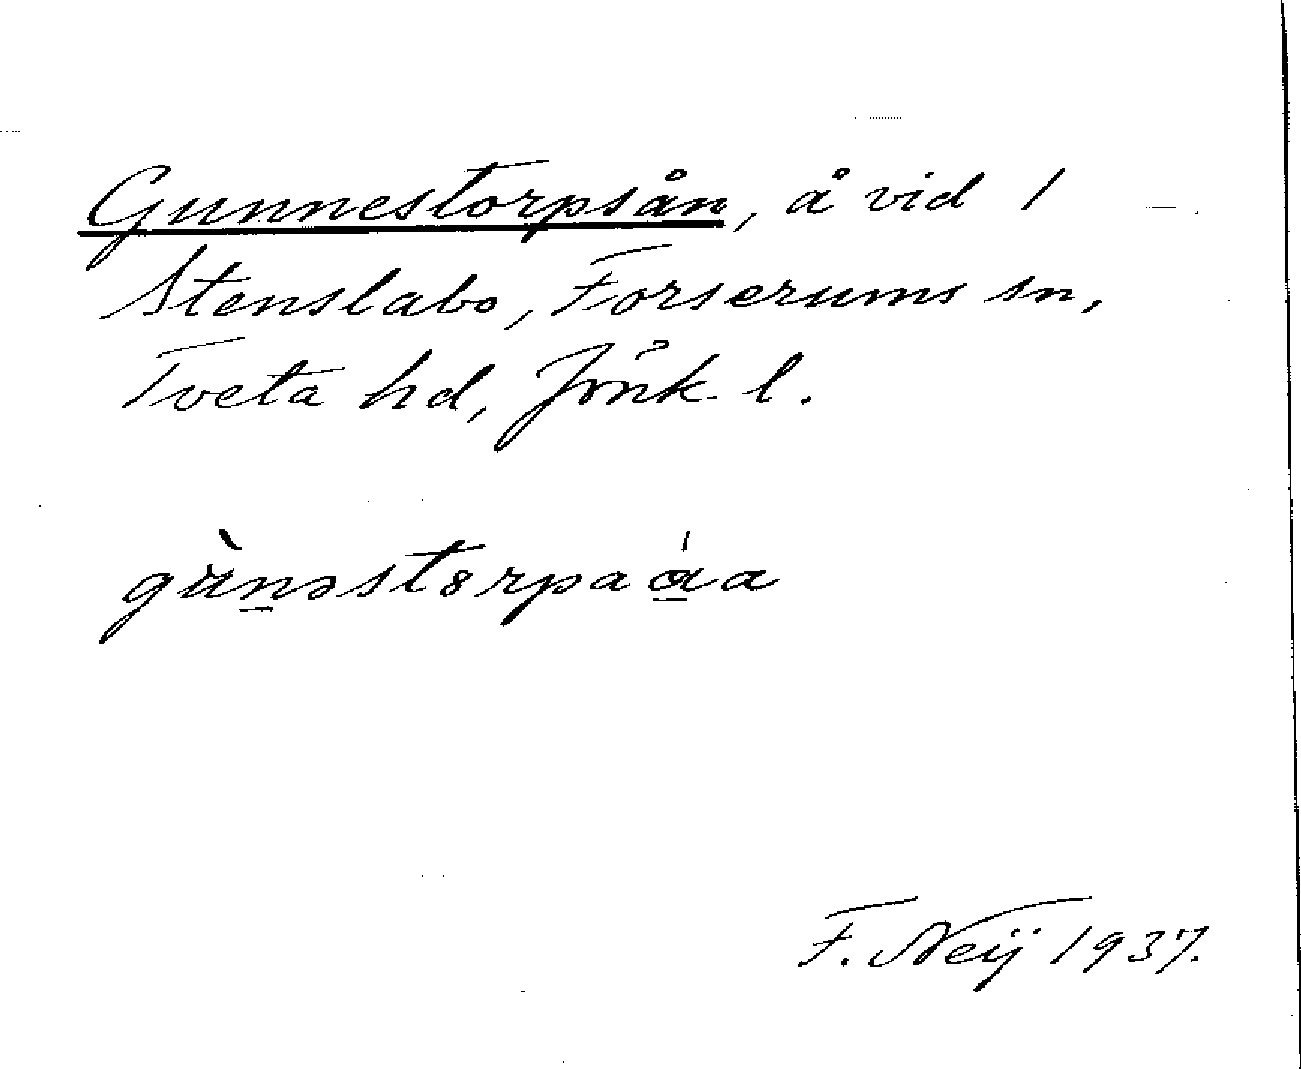 Gunnestorpsån, å vid 1
Stenslabo, Forserums sn,
Tveta hd, Jönk. l.
gùn̠əstɵrpaɑ̠́a
F. Neij 1937.